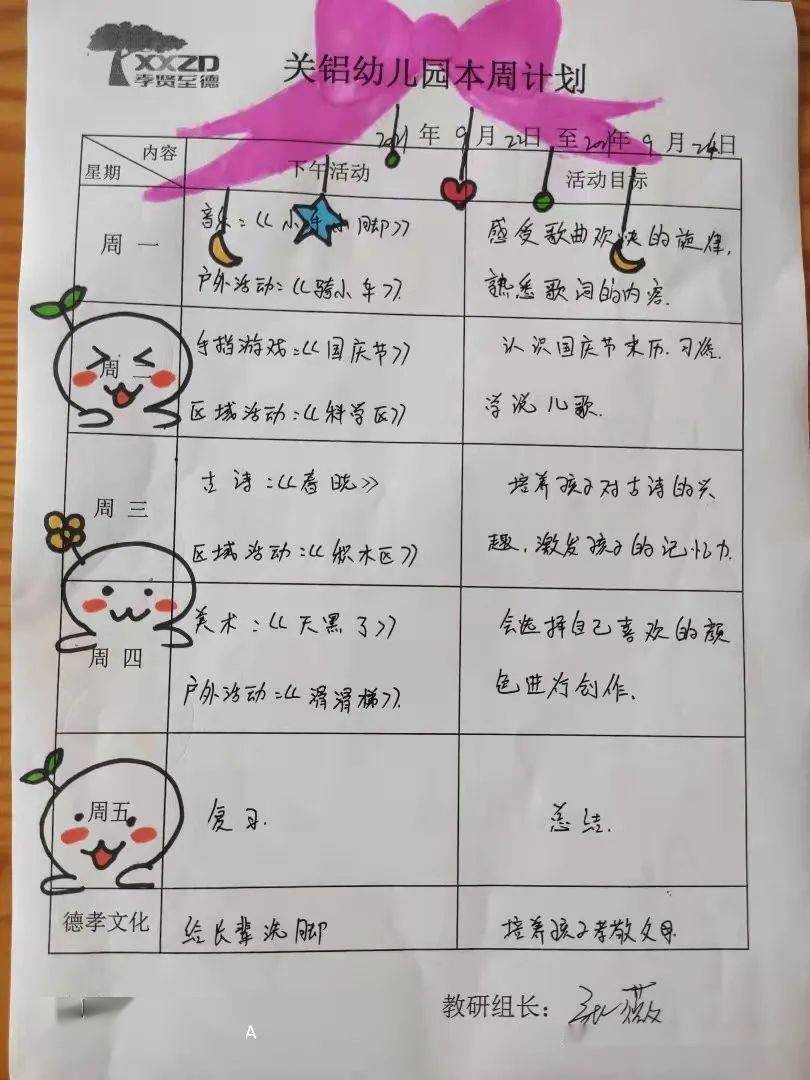 XXZD
孝贤至德
关铝幼儿园本周计划
2021年9月22日至2021年9月24日
内容
星期
下午活动
活动目标
周一
音乐:《小车小脚》
户外活动:《骑小车》.
感受歌曲欢快的旋律,
熟悉歌词的内容.
周二
手指游戏:《国庆节》
区域活动:《科学区》
认识国庆节来历.习俗.
学说儿歌.
周三
古诗:《春晓》
区域活动:《积木区》
培养孩子对古诗的兴
趣,激发孩子的记忆力.
周四
美术:《天黑了》
户外活动:《滑滑梯》.
会选择自己喜欢的颜
色进行创作.
周五
复习.
总结.
德孝文化
给长辈洗脚
培养孩子孝敬父母.
教研组长:
薇
A